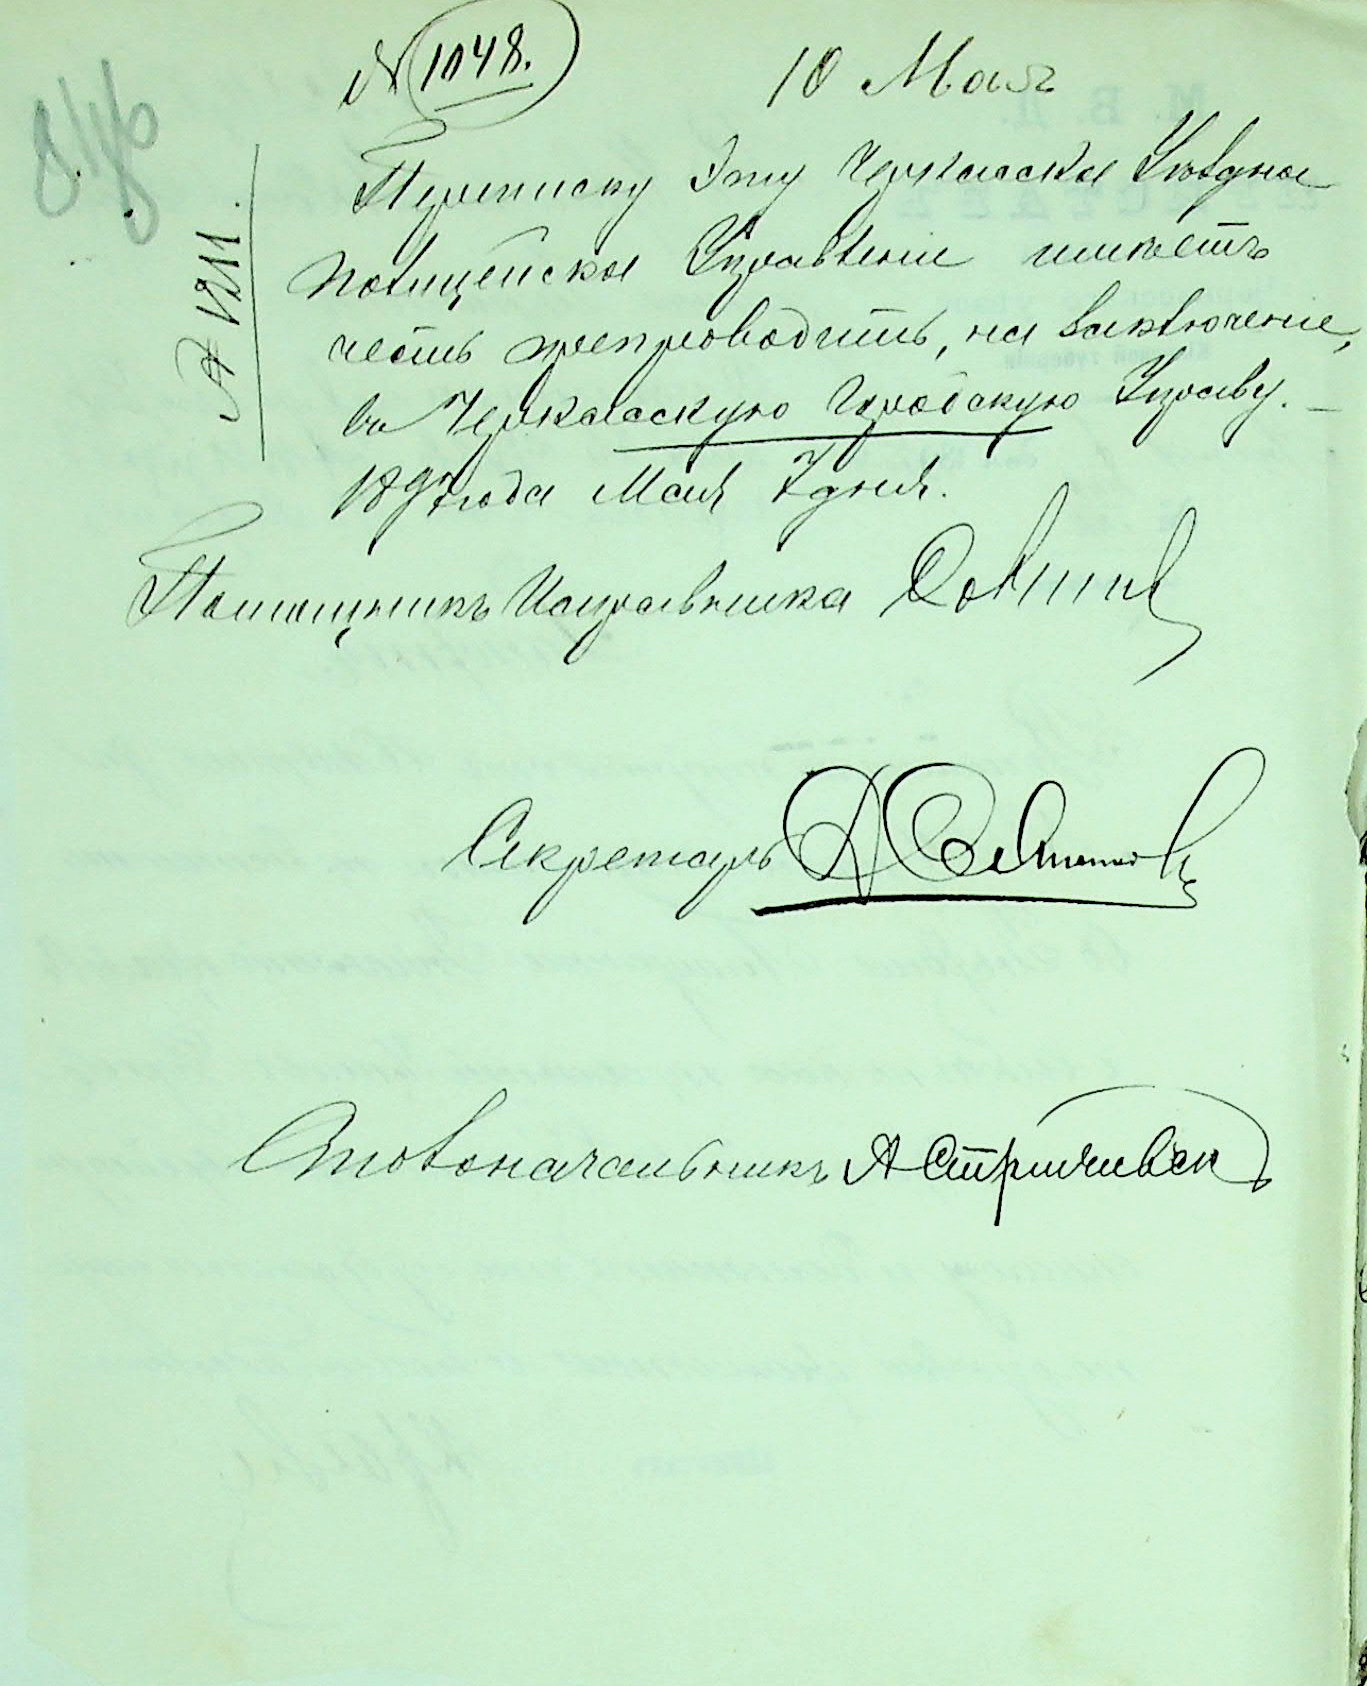 № 1048.
10 Мая
№ 1211.
Переписку эту Черкасское Уѣздное
Полицейское Управленіе имѣетъ
честь препроводить, на заключеніе,
въ Черкасскую Городскую Управу. —
189 года Мая 7 дня.
Помощникъ Исправника
Секретарь
Столоначальникъ А